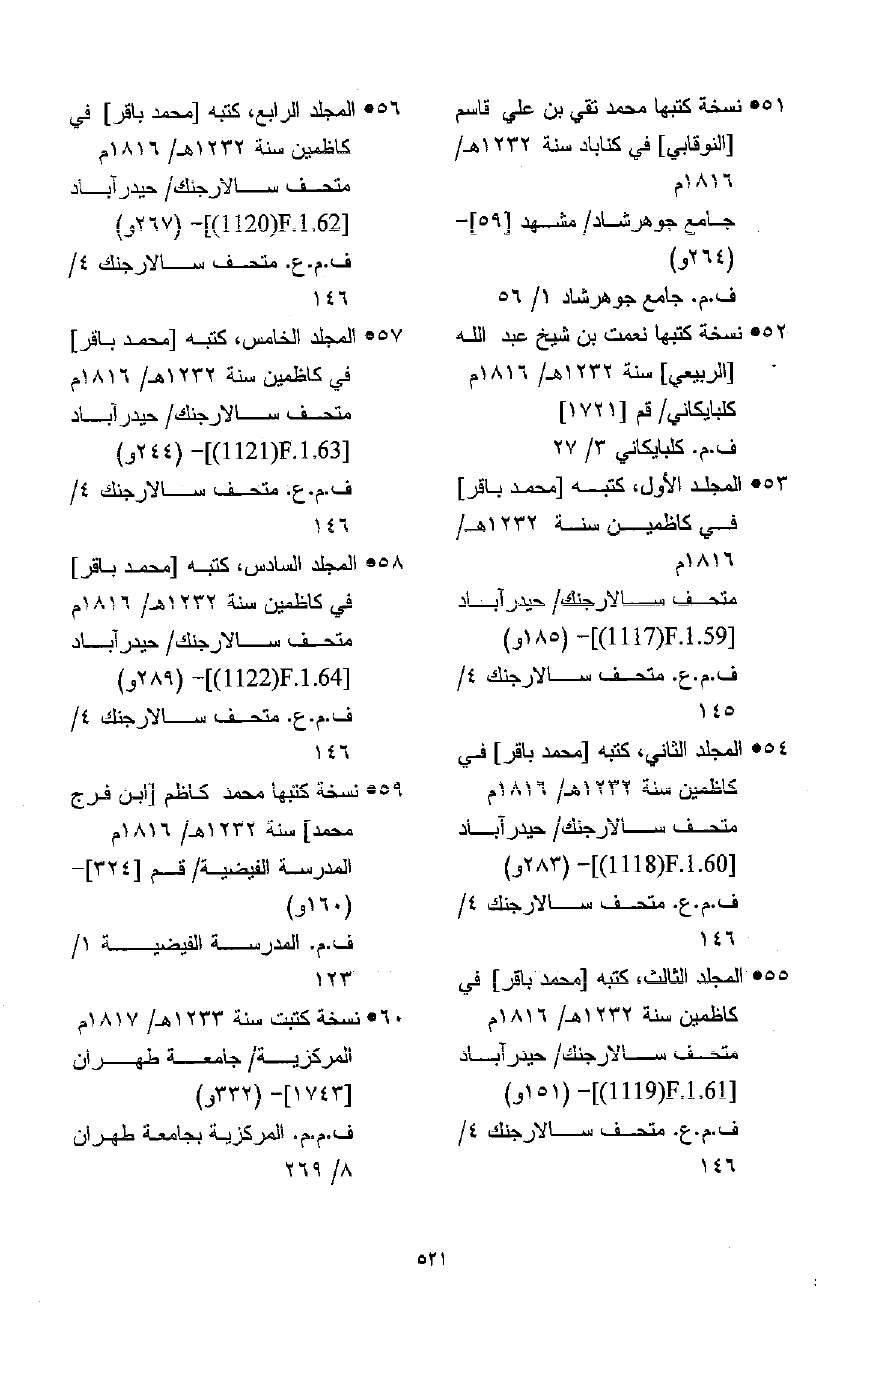 ٥١• نسخة كتبها محمد تقي بن علي قاسم
[النوقابي] في كناباد سنة ١٢٣٢هـ/
١٨١٦م
جامع جوهرشاد/ مشهد [٥٩]–
(٢٦٤و)
ف.م. جامع جوهرشاد ١/ ٥٦
٥٢• نسخة كتبها نعمت بن شيخ عبد الله
[الربيعي] سنة ١٢٣٢هـ/ ١٨١٦م
كلبايكاني/ قم [١٧٢١]
ف.م. كلبايكاني ٣/ ٢٧
٥٣• المجلد الأول، كتبه [محمد باقر]
في كاظمين سنة ١٢٣٢هـ/
١٨١٦م
متحف سالارجنك/ حيدرآباد
[1117)F.1.59)]– (١٨٥و)
ف.م.ع. متحف سالارجنك ٤/
١٤٥
٥٤• المجلد الثاني، كتبه [محمد باقر] في
كاظمين سنة ١٢٣٢هـ/ ١٨١٦م
متحف سالارجنك/ حيدرآباد
[1118)F.1.60)]– (٢٨٣و)
ف.م.ع. متحف سالارجنك ٤/
١٤٦
٥٥• المجلد الثالث، كتبه [محمد باقر] في
كاظمين سنة ١٢٣٢هـ/ ١٨١٦م
متحف سالارجنك/ حيدرآباد
[1119)F.1.61)]– (١٥١و)
ف.م.ع. متحف سالارجنك ٤/
١٤٦
٥٦• المجلد الرابع، كتبه [محمد باقر] في
كاظمين سنة ١٢٣٢هـ/ ١٨١٦م
متحف سالارجنك/ حيدرآباد
[1120)F.1.62)]– (٢٦٧و)
ف.م.ع. متحف سالارجنك ٤/
١٤٦
٥٧• المجلد الخامس، كتبه [محمد باقر]
في كاظمين سنة ١٢٣٢هـ/ ١٨١٦م
متحف سالارجنك/ حيدرآباد
[1121)F.1.63)]– (٢٤٤و)
ف.م.ع. متحف سالارجنك ٤/
١٤٦
٥٨• المجلد السادس، كتبه [محمد باقر]
في كاظمين سنة ١٢٣٢هـ/ ١٨١٦م
متحف سالارجنك/ حيدرآباد
[1122)F.1.64)]– (٢٨٩و)
ف.م.ع. متحف سالارجنك ٤/
١٤٦
٥٩• نسخة كتبها محمد كاظم [ابن فرج
محمد] سنة ١٢٣٢هـ/ ١٨١٦م
المدرسة الفيضية/ قم [٣٢٤]–
(١٦٠و)
ف.م. المدرسة الفيضية ١/
١٢٣
٦٠• نسخة كتبت سنة ١٢٣٣هـ/ ١٨١٧م
المركزية/ جامعة طهران
[١٧٤٣]– (٣٣٢و)
ف.م.م. المركزية بجامعة طهران
٨/ ٢٦٩
٥٢١